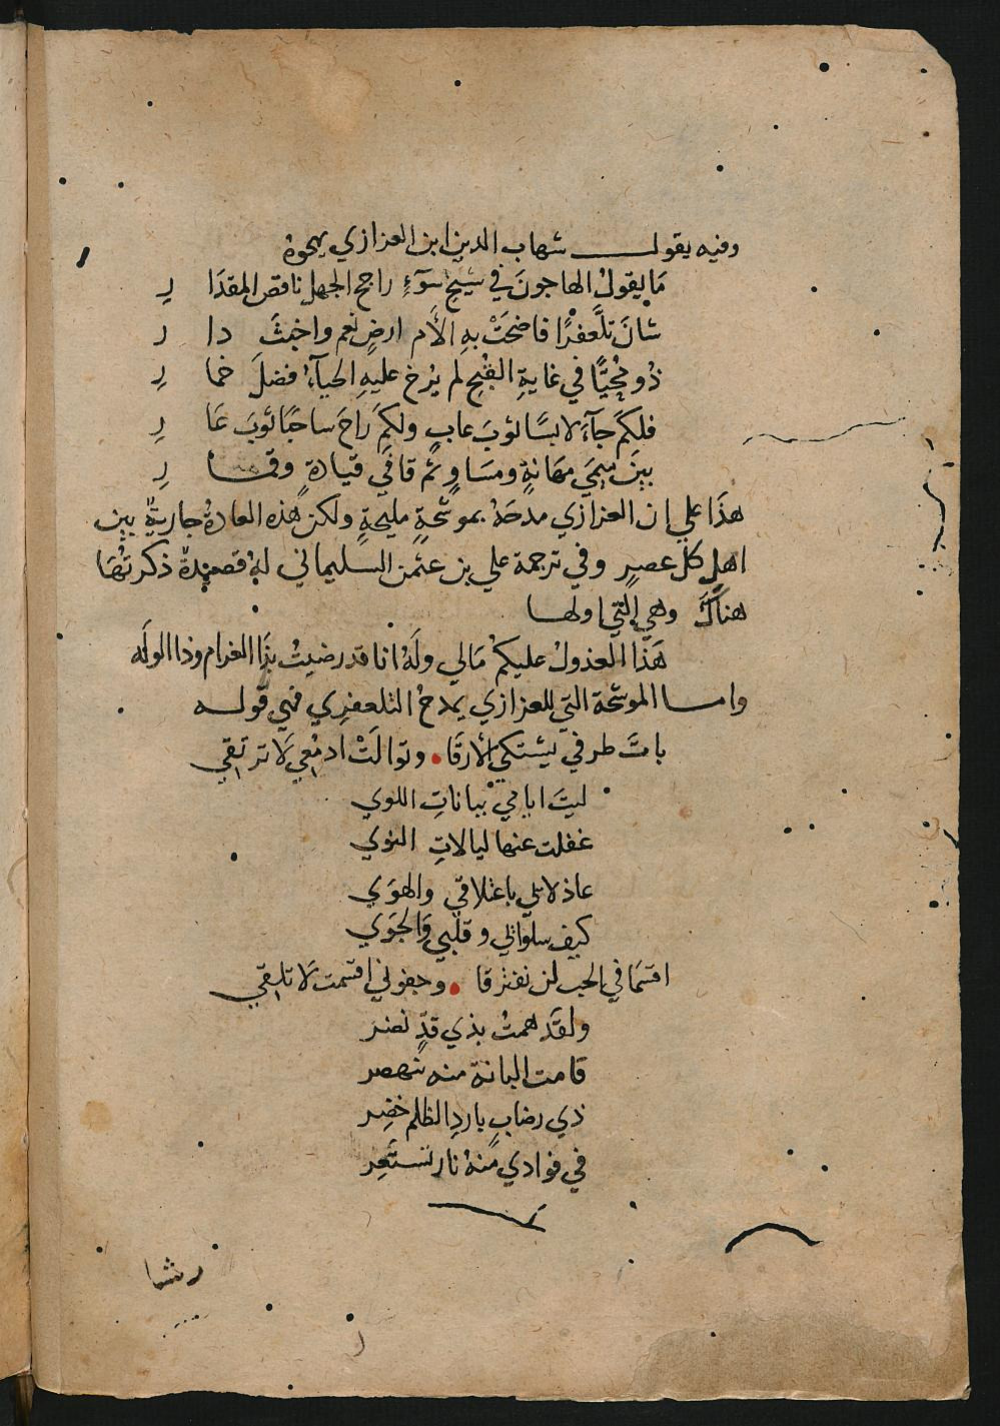 وفيه يقول شهاب الدين ابن العزازي يهجوه
مَا يقولُ الهاجونَ في شيخِ سَوءٍ راجح الجهل ناقص المقدَا رِ
شانَ تلَّعفرًا فاضحَتْ بهِ الأم ارضٍ نعم واخبثَ دا ر
ذُو مُحيًّا في غايةِ القُبحِ لم يُرخ عليهِ الحيآءُ فضلَ خما رِ
فلكم جآءَ لابسًا ثوبَ عابٍ ولكم راحَ ساحبًا ثوبَ عَا رِ
بينَ ميمَي مهَانةٍ ومسَاوٍ ثم قافَي قيادةٍ وقمَا رِ
هذَا علي ان العزازي مدحَهُ بموشّحةٍ مليحةٍ ولكن هذه العادةُ جاريةٌ بين
اهل كل عصرٍ وفي ترجمة علي بن عثمن السليماني لهُ قصيدةٌ ذكرتُهَا
هناكَ وهي التي اولها
هَذا العذولُ عليكمُ مَالي ولَهُ انا قد رضيتُ بذَا الغرام وذا الولَه
واما الموشّحة التي للعزازي يمدحُ التلعفري فهي قوله
باتَ طرفي يشتكي الأرقَا • وتوالَتْ ادمُعي لَا ترتقي
ليتَ ايامي ببانَاتِ اللوي
غفلت عنها ليالاتِ النوي
عاذلاتي باعتلاقي والهوَي
كيف سلواني وقلبي وَالجوَي
اقسَما في الحب لن نفترقا • وجفوني اقسمت لَا تلتقي
ولقَد همتُ بذي قدّ نضر
قامت البانة منه تهصر
ذي رضابٍ باردِ الظلم خضِر
في فوادي منهُ نار تستعِر
رشا